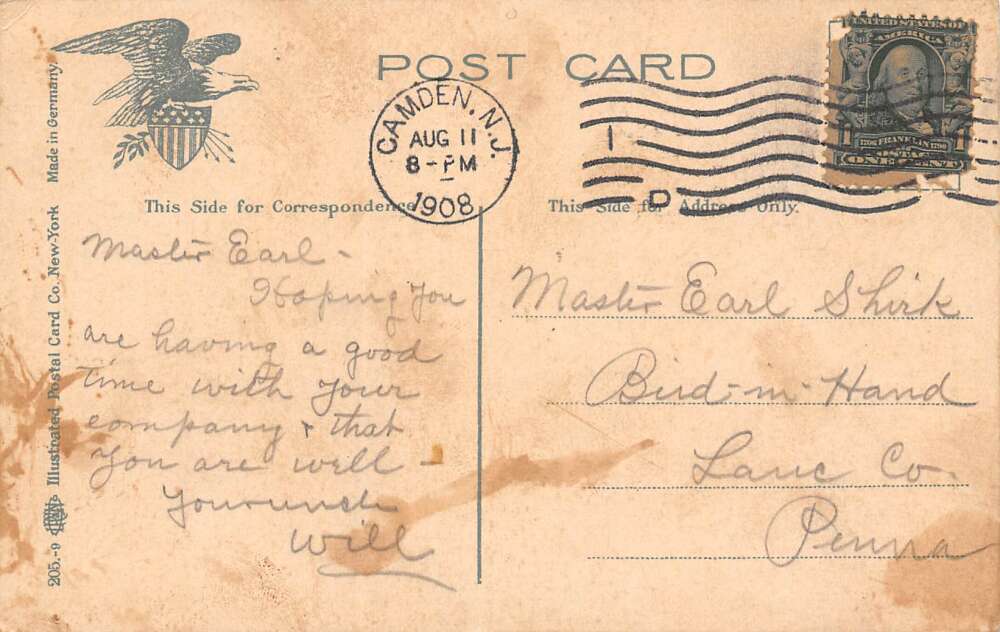 POST CARD
CAMDEN, N.J.
AUG 11
8-PM
1908
1
D
UNITED STATES OF
AMERICA
FRANKLIN
ONE CENT
This Side for Correspondence
This Side for Address Only.
Master Earl -
Hoping you
are having a good
time with your
company & that
you are well -
Your uncle
Will
Master Earl Shirk
Bird-in-Hand
Lanc Co.
Penna
205.-9 Illustrated Postal Card Co. New-York Made in Germany.